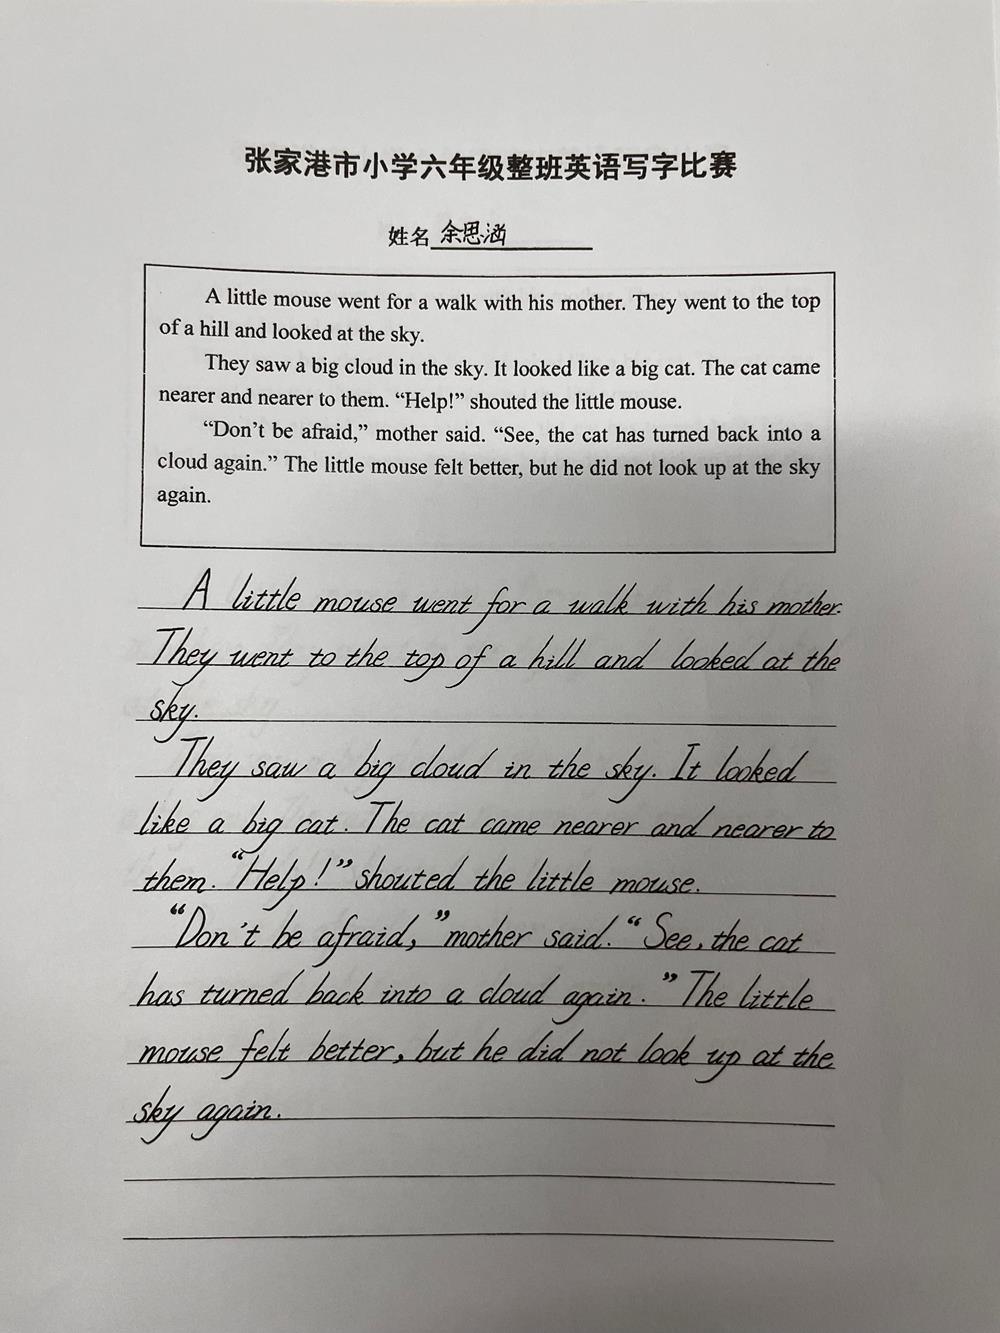 张家港市小学六年级整班英语写字比赛
姓名 余思涵
A little mouse went for a walk with his mother. They went to the top
of a hill and looked at the sky.
They saw a big cloud in the sky. It looked like a big cat. The cat came
nearer and nearer to them. “Help!” shouted the little mouse.
“Don’t be afraid,” mother said. “See, the cat has turned back into a
cloud again.” The little mouse felt better, but he did not look up at the sky
again.
A little mouse went for a walk with his mother.
They went to the top of a hill and looked at the
sky.
They saw a big cloud in the sky. It looked
like a big cat. The cat came nearer and nearer to
them. “Help!” shouted the little mouse.
“Don't be afraid,” mother said. “See, the cat
has turned back into a cloud again.” The little
mouse felt better, but he did not look up at the
sky again.